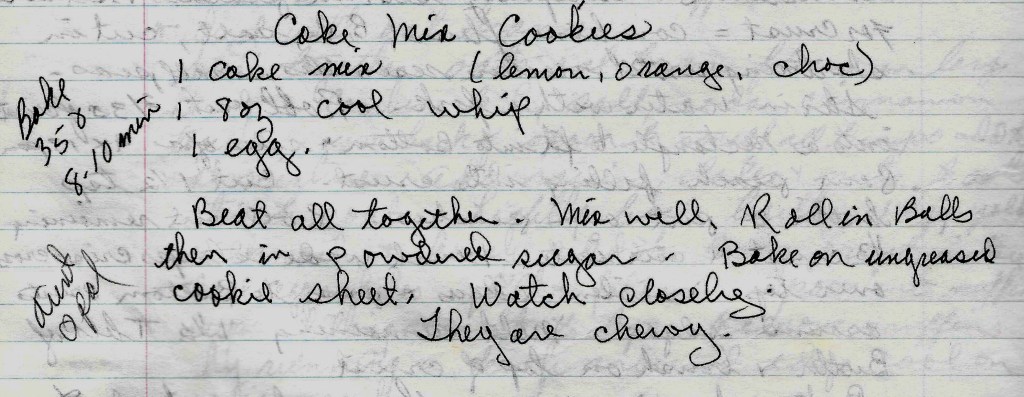 Cake Mix Cookies
1 cake mix (lemon, orange, choc)
1 8oz cool whip
1 egg.
Bake
350
8-10 min
Beat all together. Mix well, Roll in Balls
then in powdered sugar. Bake on ungreased
cookie sheet. Watch closely.
They are chewy.
Aunt
Opal